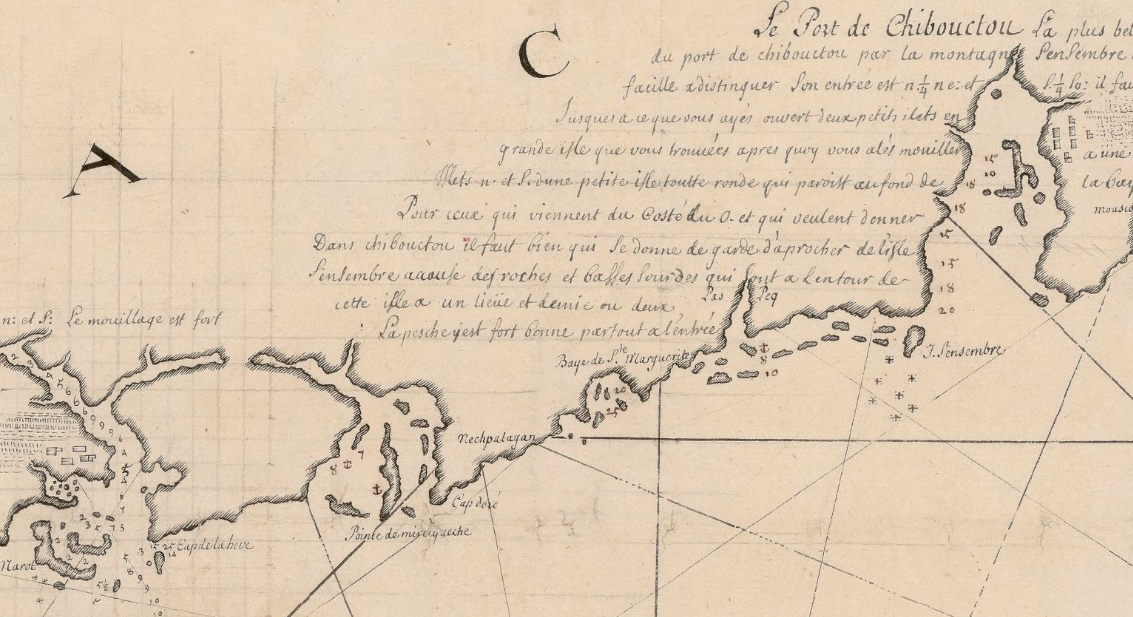 Le Port de Chibouctou La plus bel
C
du port de chibouctou par la montagne Sensembre
facille a distinguer Son entrée est n ¼ ne: et S ¼ So: il fau
Jusques a ce que vous ayés ouvert deux petits ilets en
A
grande isle que vous trouuées apres quoy vous alés mouiller a une
Illets n. et S. dune petite isle toutte ronde qui paroist au fond de la Bay
Pour ceux qui viennent du Costé du O. et qui veulent donner
Dans chibouctou il faut bien qui Se donne de garde d'aprocher de l'isle
Sensembre acause des roches et basses Sourdes qui Sont a Lentour de
cette isle a un lieüe et demie ou deux
Pas Peq
n: et S: Le mouillage est fort
La pesche y est fort bonne partout a l'entrée
Baye de Ste Marguerite
I. Sensembre
Nechpatagan
Cap doré
Pointe de
Cap de la heve
Marot
15
10
18
18
15
15
18
20
8
10
20
25
8
7